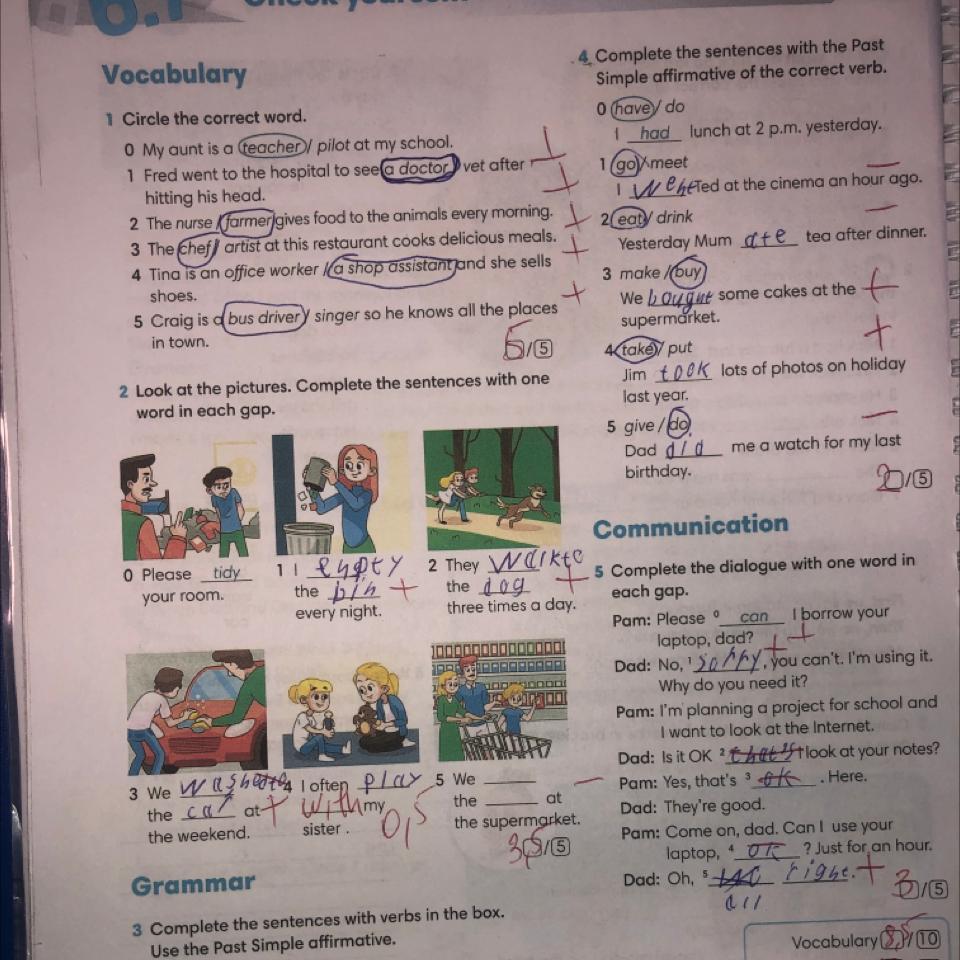 6.7
Vocabulary
1 Circle the correct word.
0 My aunt is a teacher / pilot at my school.
1 Fred went to the hospital to see a doctor / vet after
hitting his head.
2 The nurse / farmer gives food to the animals every morning.
3 The chef / artist at this restaurant cooks delicious meals.
4 Tina is an office worker / a shop assistant and she sells
shoes.
5 Craig is a bus driver / singer so he knows all the places
in town.
5/5
2 Look at the pictures. Complete the sentences with one
word in each gap.
0 Please tidy
your room.
1 I empty
the bin +
every night.
2 They
the dog +
three times a day.
3 We
the car at +
the weekend.
4 I often play
with my
sister.
0,5
5 We ______
the ______ at
the supermarket.
3,5/5
Grammar
3 Complete the sentences with verbs in the box.
Use the Past Simple affirmative.
4 Complete the sentences with the Past
Simple affirmative of the correct verb.
0 have / do
I had lunch at 2 p.m. yesterday.
1 go / meet
I Ted at the cinema an hour ago.
2 eat / drink
Yesterday Mum ate tea after dinner.
3 make / buy
We bought some cakes at the
supermarket.
4 take / put
Jim took lots of photos on holiday
last year.
5 give / do
Dad did me a watch for my last
birthday.
2/5
Communication
5 Complete the dialogue with one word in
each gap.
Pam: Please 0 can I borrow your
laptop, dad?
Dad: No, 1 sorry, you can't. I'm using it.
Why do you need it?
Pam: I'm planning a project for school and
I want to look at the Internet.
Dad: Is it OK 2 look at your notes?
Pam: Yes, that's 3 ok. Here.
Dad: They're good.
Pam: Come on, dad. Can I use your
laptop, 4 ok? Just for an hour.
Dad: Oh, 5 right. +
all
3/5
Vocabulary 8,5/10